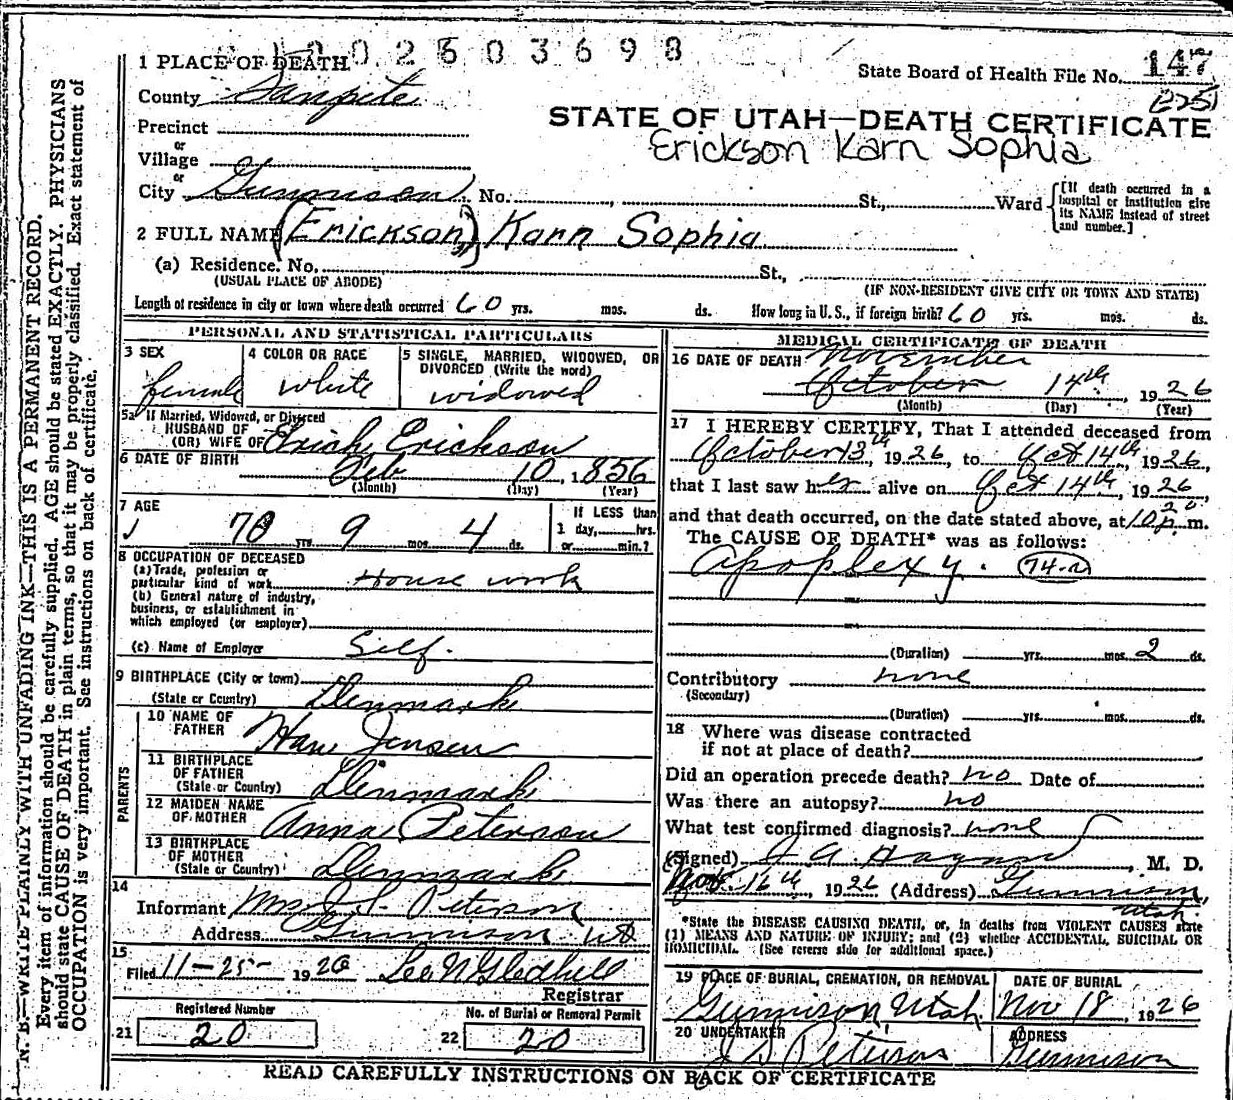 1002603698
1 PLACE OF DEATH
State Board of Health File No. 147
County Sanpete
STATE OF UTAH—DEATH CERTIFICATE
Precinct
Erickson Karn Sophia
or
Village
or
City Gunnison No. St., Ward
[If death occurred in a
hospital or institution give
its NAME instead of street
and number.]
2 FULL NAME (Erickson) Karn Sophia
(a) Residence. No. St.,
(USUAL PLACE OF ABODE) (IF NON-RESIDENT GIVE CITY OR TOWN AND STATE)
Length of residence in city or town where death occurred 60 yrs. mos. ds. How long in U. S., if foreign birth? 60 yrs. mos. ds.
PERSONAL AND STATISTICAL PARTICULARS
3 SEX
female
4 COLOR OR RACE
white
5 SINGLE, MARRIED, WIDOWED, OR
DIVORCED (Write the word)
widowed
5a If Married, Widowed, or Divorced
HUSBAND OF
(OR) WIFE OF Erick Erickson
6 DATE OF BIRTH Feb 10, 1856
(Month) (Day) (Year)
7 AGE
70 yrs. 9 mos. 4 ds.
If LESS than
1 day, hrs.
or min.?
8 OCCUPATION OF DECEASED
(a) Trade, profession or
particular kind of work House work
(b) General nature of industry,
business, or establishment in
which employed (or employer)
(c) Name of Employer Self.
9 BIRTHPLACE (City or town)
(State or Country) Denmark
PARENTS
10 NAME OF
FATHER Hans Jensen
11 BIRTHPLACE
OF FATHER
(State or Country) Denmark
12 MAIDEN NAME
OF MOTHER Anna Peterson
13 BIRTHPLACE
OF MOTHER
(State or Country) Denmark
14
Informant Mrs J. S. Peterson
Address Gunnison Ut
15
Filed 11-25- 1926 Leo N Gledhill
Registrar
Registered Number
21 20
No. of Burial or Removal Permit
22 20
MEDICAL CERTIFICATE OF DEATH
16 DATE OF DEATH November
October 14th, 1926
(Month) (Day) (Year)
17 I HEREBY CERTIFY, That I attended deceased from
October 13th, 1926, to Oct 14th, 1926,
that I last saw her alive on Oct 14th, 1926,
and that death occurred, on the date stated above, at 10 20 p. m.
The CAUSE OF DEATH* was as follows:
Apoplexy. 74-a
(Duration) yrs. mos. 2 ds.
Contributory none
(Secondary)
(Duration) yrs. mos. ds.
18 Where was disease contracted
if not at place of death?
Did an operation precede death? no Date of
Was there an autopsy? no
What test confirmed diagnosis? none
(Signed) J A Hagan, M. D.
Nov. 16th, 1926 (Address) Gunnison
Utah.
*State the DISEASE CAUSING DEATH, or, in deaths from VIOLENT CAUSES state
(1) MEANS AND NATURE OF INJURY; and (2) whether ACCIDENTAL, SUICIDAL OR
HOMICIDAL. (See reverse side for additional space.)
19 PLACE OF BURIAL, CREMATION, OR REMOVAL
Gunnison Utah
DATE OF BURIAL
Nov 18, 1926
20 UNDERTAKER
J S Peterson
ADDRESS
Gunnison
READ CAREFULLY INSTRUCTIONS ON BACK OF CERTIFICATE
N. B.—WRITE PLAINLY WITH UNFADING INK—THIS IS A PERMANENT RECORD.
Every item of information should be carefully supplied. AGE should be stated EXACTLY. PHYSICIANS
should state CAUSE OF DEATH in plain terms, so that it may be properly classified. Exact statement of
OCCUPATION is very important. See instructions on back of certificate.